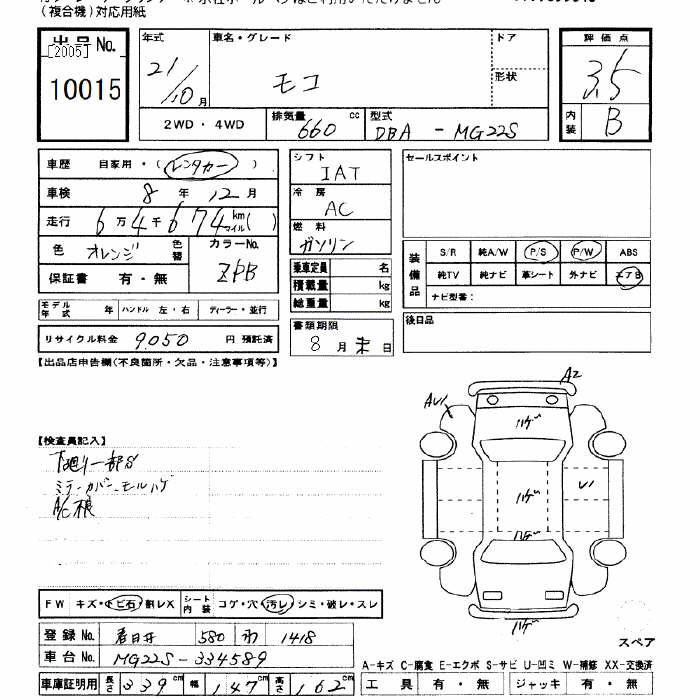 (複合機)対応用紙
出品No.
[2005]
10015
年式
21/10月
車名・グレード
モコ
ドア
形状
評価点
3.5
内装
B
2WD・4WD
排気量 660 cc
型式 DBA - MG22S
車歴 自家用・(レンタカー)
車検 8年 12月
走行 6万4千674 km マイル( )
色 オレンジ 色替
カラーNo. ZPB
保証書 有・無
モデル年式 年 ハンドル 左・右 ディーラー・並行
リサイクル料金 9,050 円 預託済
シフト
IAT
冷房
AC
燃料
ガソリン
乗車定員 名
積載量 kg
総重量 kg
書類期限
8月末日
セールスポイント
装備品
S/R 純A/W P/S P/W ABS
純TV 純ナビ 革シート 外ナビ エアB
ナビ型番:
後日品
【出品店申告欄(不良箇所・欠品・注意事項等)】
【検査員記入】
下廻り一部S
ミラーカバー、モールハゲ
A/C
A2
AU1
ハゲ
ハゲ
U1
ハゲ
FW キズ・トビ石・割レX シート内装 コゲ・穴・汚レ・シミ・破レ・スレ
登録No. 春日井 580 わ 1418
車台No. MG22S-334589
車庫証明用 長さ 339cm 幅 147cm 高さ 162cm
スペア
A-キズ C-腐食 E-エクボ S-サビ U-凹ミ W-補修 XX-交換済
工具 有・無 ジャッキ 有・無